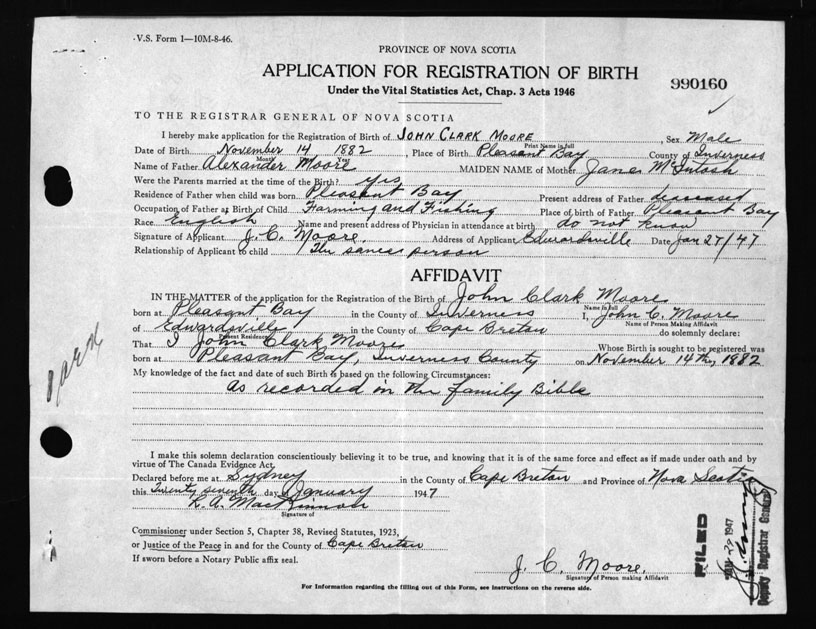 V.S. Form 1—10M-8-46.
PROVINCE OF NOVA SCOTIA
APPLICATION FOR REGISTRATION OF BIRTH
990160
Under the Vital Statistics Act, Chap. 3 Acts 1946
TO THE REGISTRAR GENERAL OF NOVA SCOTIA
I hereby make application for the Registration of Birth of JOHN CLARK MOORE, Sex Male
Print Name in full
Date of Birth November 14 1882, Place of Birth Pleasant Bay County of Inverness
Month Year
Name of Father Alexander Moore MAIDEN NAME of Mother Janes McIntosh
Were the Parents married at the time of the Birth? Yes
Residence of Father when child was born Pleasant Bay Present address of Father deceased
Occupation of Father at Birth of Child Farming and Fishing Place of birth of Father Pleasant Bay
Race English Name and present address of Physician in attendance at birth do not know
Signature of Applicant J. C. Moore. Address of Applicant Edwardsville Date Jan 27/47
Relationship of Applicant to child The same person
AFFIDAVIT
IN THE MATTER of the application for the Registration of the Birth of John Clark Moore
Name in full
born at Pleasant Bay in the County of Inverness I, John C. Moore
Name of Person Making Affidavit
of Edwardsville in the County of Cape Breton do solemnly declare:
Present Residence
That I John Clark Moore Whose Birth is sought to be registered was
born at Pleasant Bay, Inverness County on November 14th, 1882
My knowledge of the fact and date of such Birth is based on the following Circumstances:
as recorded in the family Bible
I make this solemn declaration conscientiously believing it to be true, and knowing that it is of the same force and effect as if made under oath and by
virtue of The Canada Evidence Act.
Declared before me at Sydney in the County of Cape Breton and Province of Nova Scotia
this Twenty seventh day of January 1947
R. A. MacKinnon
Signature of
Commissioner under Section 5, Chapter 38, Revised Statutes, 1923,
or Justice of the Peace in and for the County of Cape Breton
If sworn before a Notary Public affix seal.
J. C. Moore.
Signature of Person making Affidavit
For Information regarding the filling out of this Form, see instructions on the reverse side.
FILED
1947
Deputy Registrar General